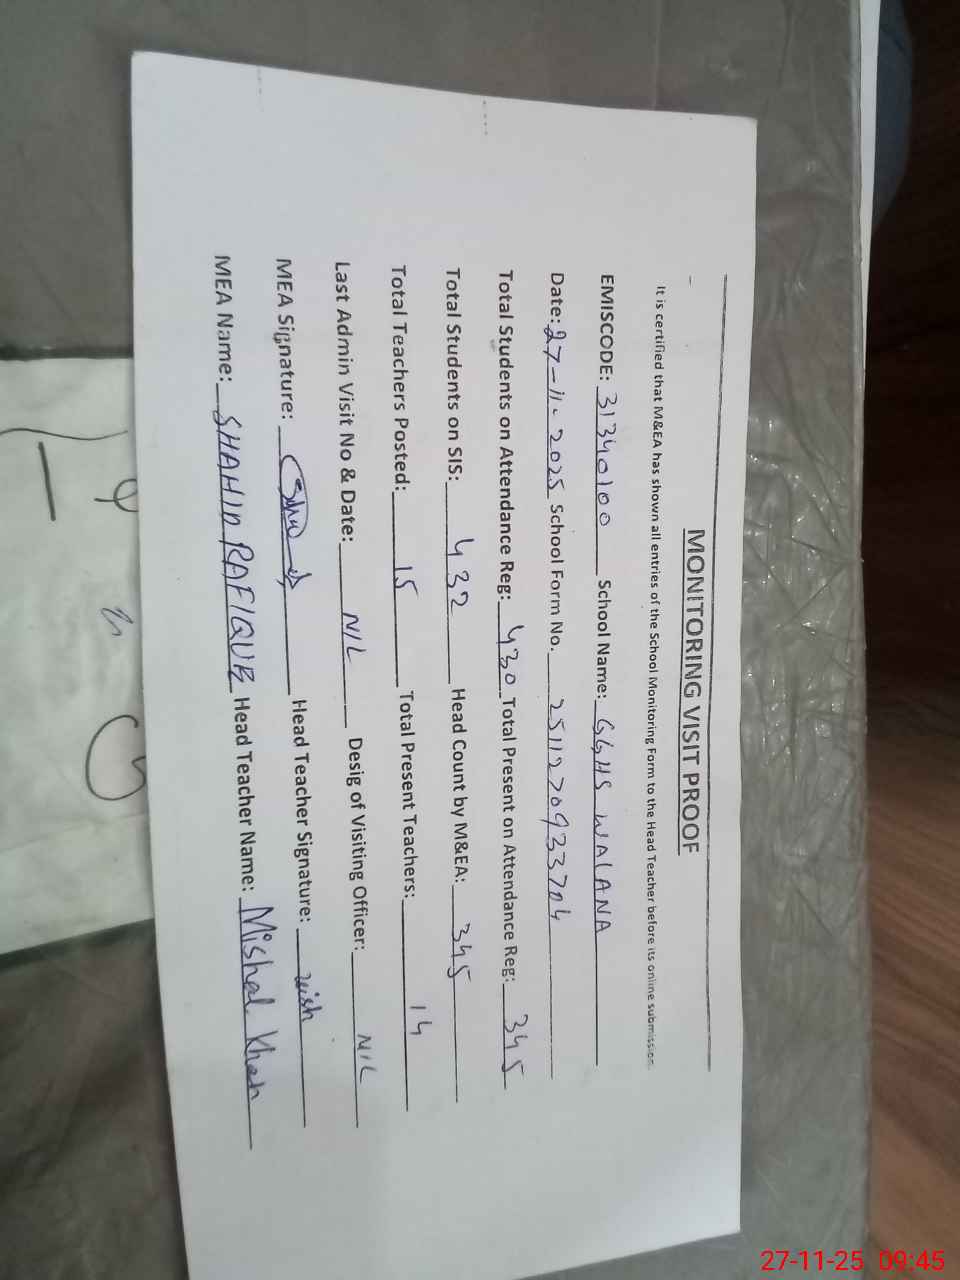 MONITORING VISIT PROOF
It is certified that M&EA has shown all entries of the School Monitoring Form to the Head Teacher before its online submission.
EMISCODE: 31340100 School Name: GGHS WALANA
Date: 27-11-2025 School Form No. 2511270933704
Total Students on Attendance Reg: 430 Total Present on Attendance Reg: 345
Total Students on SIS: 432 Head Count by M&EA: 345
Total Teachers Posted: 15 Total Present Teachers: 14
Last Admin Visit No & Date: NIL Desig of Visiting Officer: NIL
MEA Signature: Head Teacher Signature:
MEA Name: SHAHID RAFIQUE Head Teacher Name: Mishal Khan
27-11-25 09:45